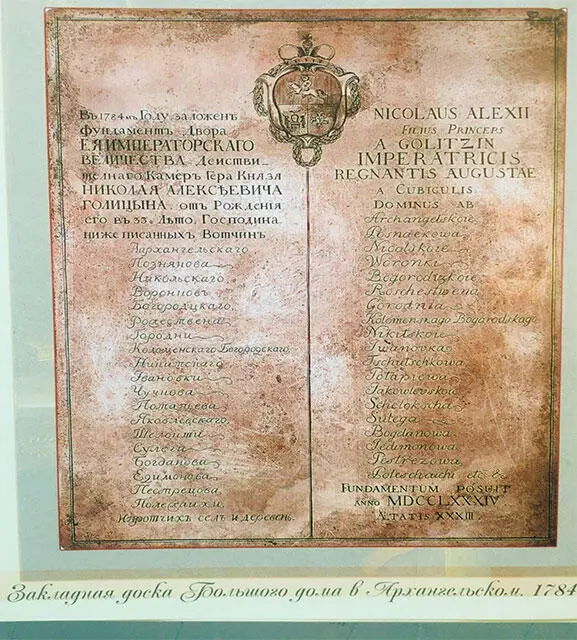 Въ 1784 мъ Году, заложен
фундаментъ Двора
ЕЯ ИМПЕРАТОРСКАГО
ВЕЛИЧЕСТВА Действи-
телнаго Камеръ Гера Князя
НИКОЛАЯ АЛЕКСѢЕВИЧА
ГОЛИЦЫНА, отъ Рождения
его въ 33е Лѣто. Господина
ниже писанныхъ Вотчинъ
Архангельскаго
Познякова
Никольскаго
Воронковъ
Богородцкаго
Рождествена
Городни
Коломенскаго Богородского
Никитскаго
Ивановки
Чучкова
Потапьева
Яковлевскаго
Сулега
Богданова
Едимонова
Пестрецова
и протчихъ селъ и деревень.
NICOLAUS ALEXII
Filius Princeps
A GOLITZIN
IMPERATRICIS
REGNANTIS AUGUSTAE
A CUBICULIS
DOMINUS AB
Archangelskoie
Posnaekowa
Nicolskoie
Woronki
Bogorodizkoie
Roschestwena
Gorodnia
Kolomenskago Bogorodskago
Nikitskoie
Iwanowka
Tschutschkowa
Potapiewa
Jakowlewskoie
Schelokscha
Sulega
Bogdanowa
Jedimonowa
Pestrezowa
etc &
FUNDAMENTUM POSUIT
ANNO MDCCLXXXIV
ÆTATIS XXXIII.
Закладная доска Большого дома в Архангельском. 1784